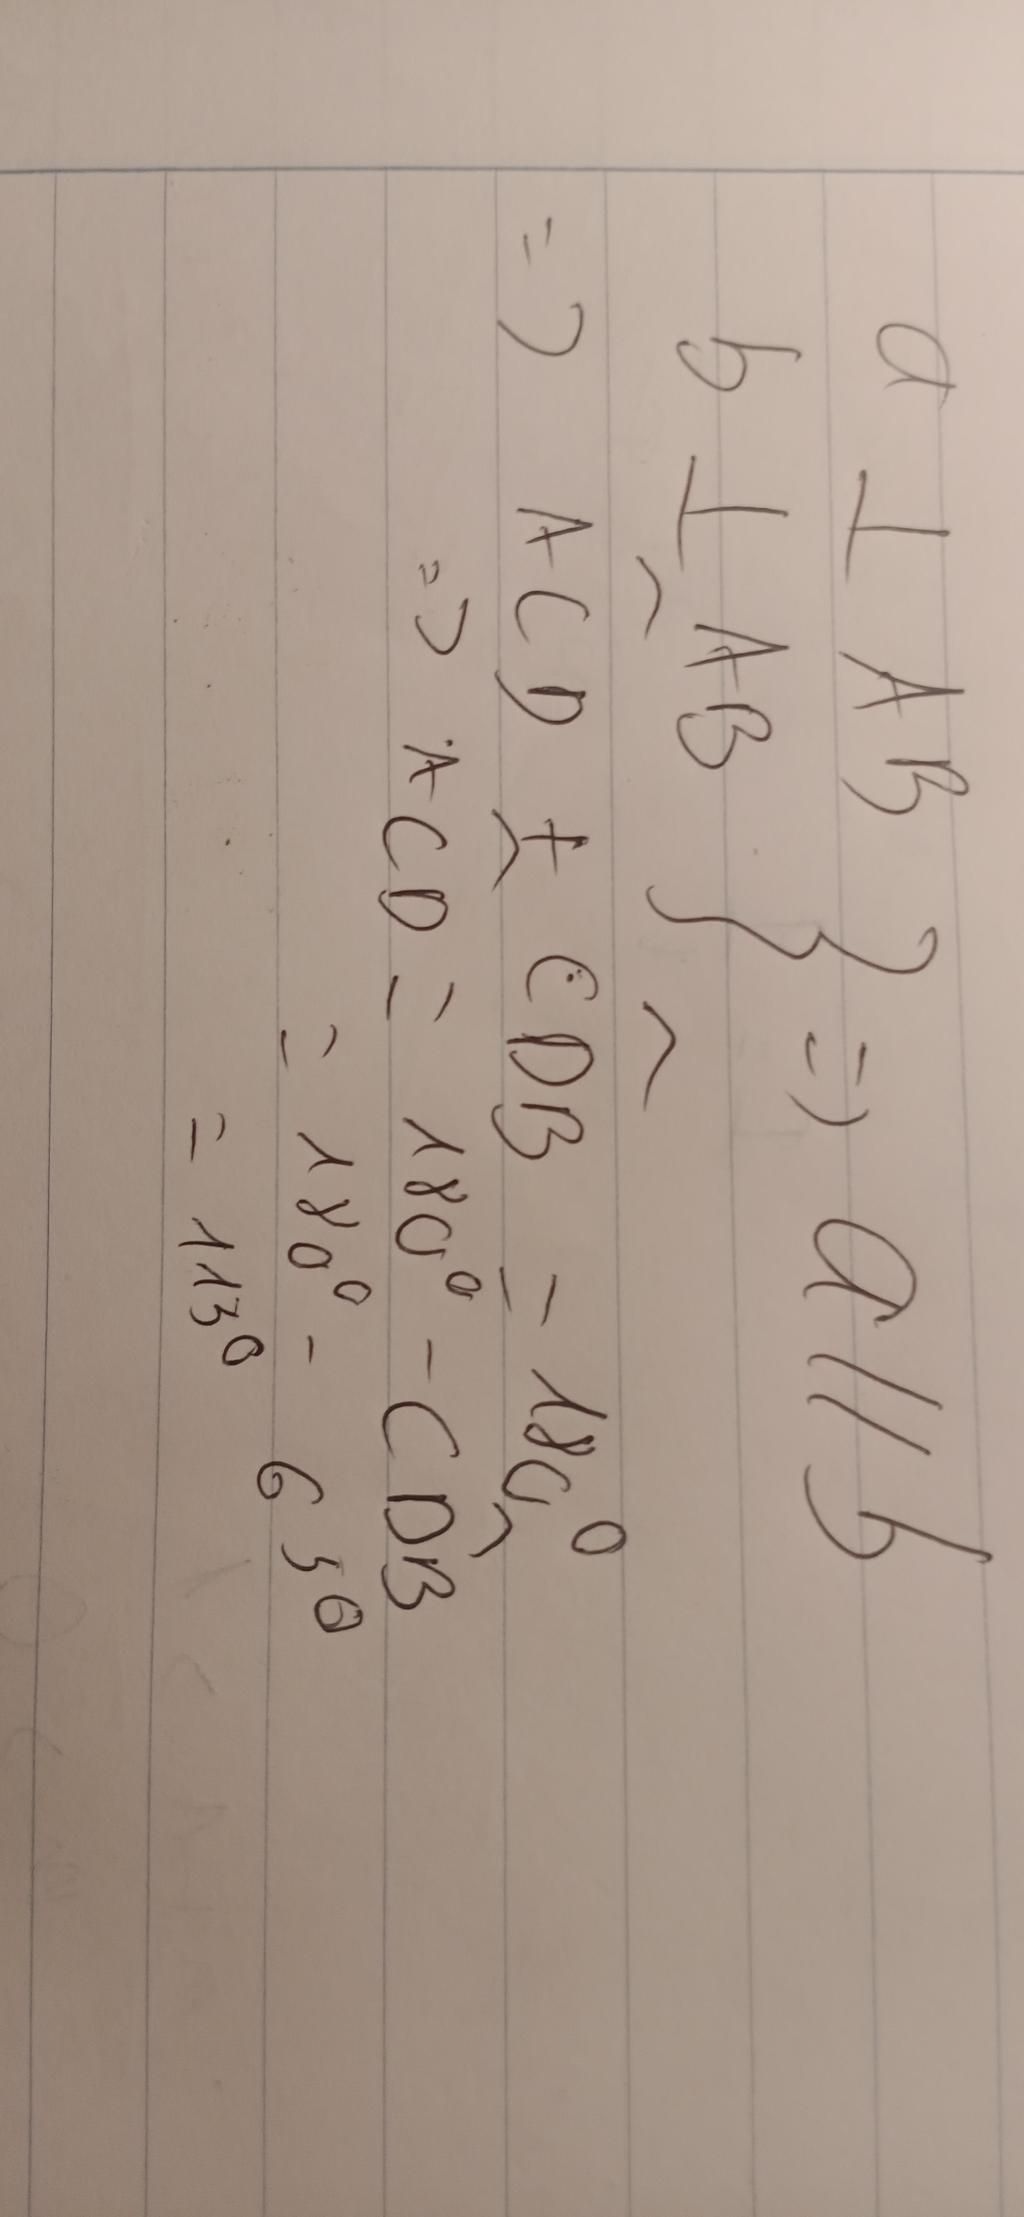 a ⊥ AB
b ⊥ AB } => a // b
=> ACD^ + CDB^ = 180°
=> ACD^ = 180° - CDB^
= 180° - 63°
= 113°